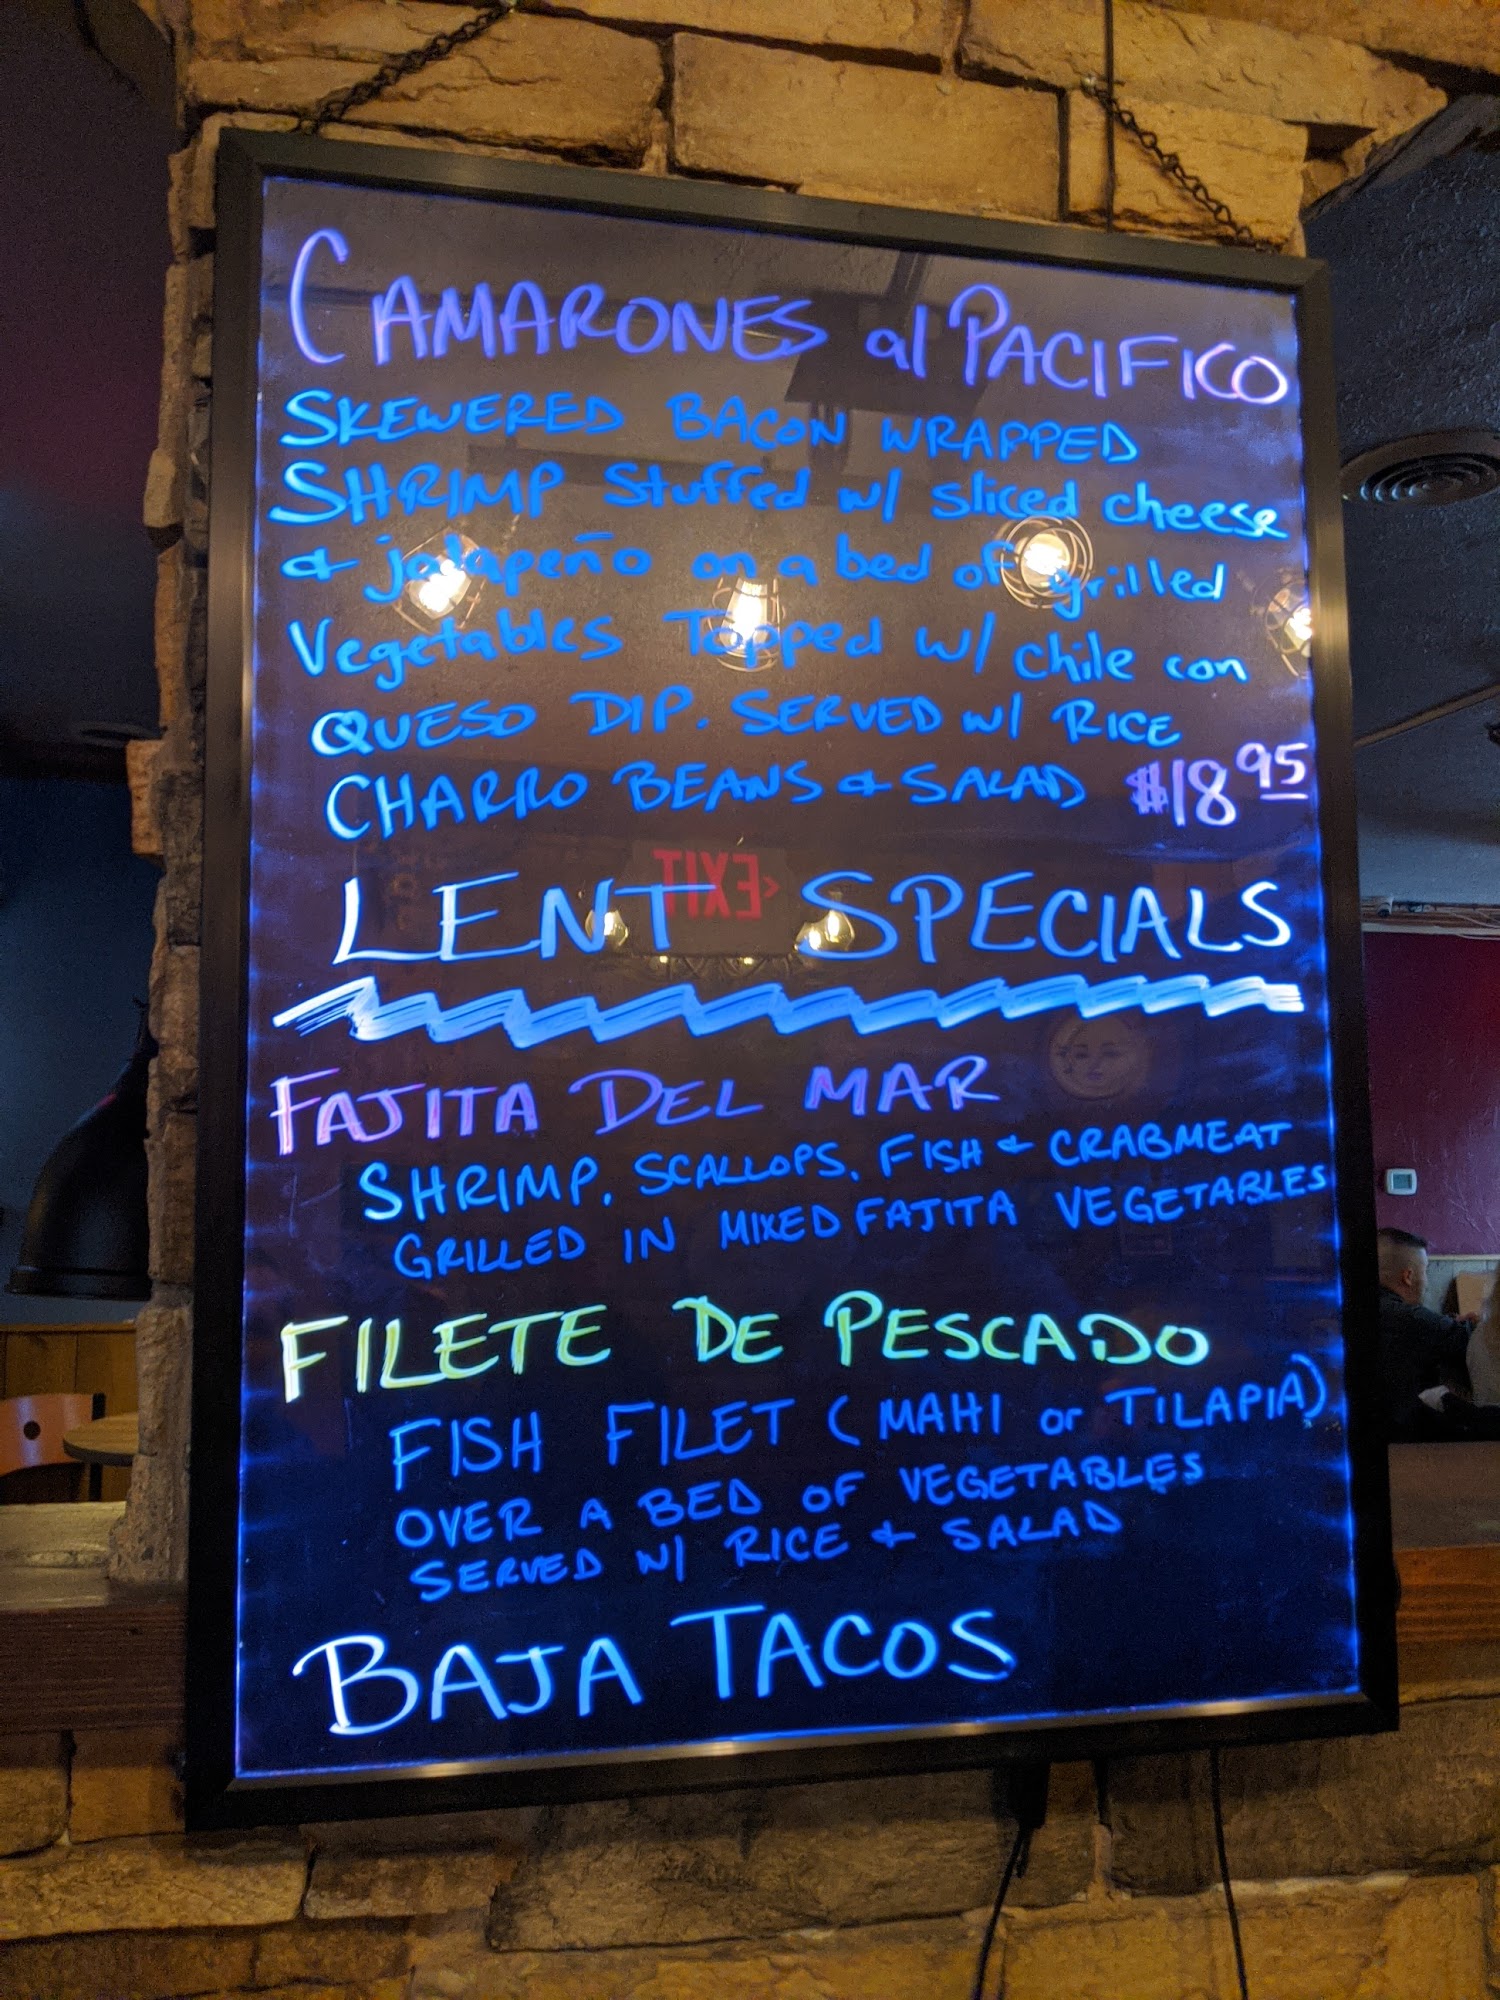 CAMARONES al PACIFICO
SKEWERED BACON WRAPPED
SHRIMP Stuffed w/ sliced cheese
& jalapeño on a bed of grilled
Vegetables Topped w/ chile con
QUESO DIP. SERVED w/ RICE
CHARRO BEANS & SALAD $18.95
EXIT
LENT SPECIALS
FAJITA DEL MAR
SHRIMP, SCALLOPS, FISH & CRABMEAT
GRILLED IN MIXED FAJITA VEGETABLES
FILETE DE PESCADO
FISH FILET (MAHI or TILAPIA)
OVER A BED OF VEGETABLES
SERVED W/ RICE & SALAD
BAJA TACOS